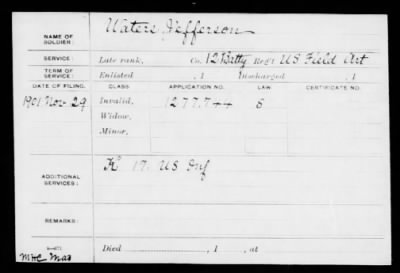 NAME OF SOLDIER: Waters Jefferson
SERVICE: Late rank, Co. 12 Batty Reg't US Field Art
TERM OF SERVICE: Enlisted , 1 Discharged , 1
DATE OF FILING. CLASS. APPLICATION NO. LAW. CERTIFICATE NO.
1901 Nov 29 Invalid, 1277744 S
Widow,
Minor,
ADDITIONAL SERVICES: K 17 US Inf
REMARKS:
Died , 1 , at